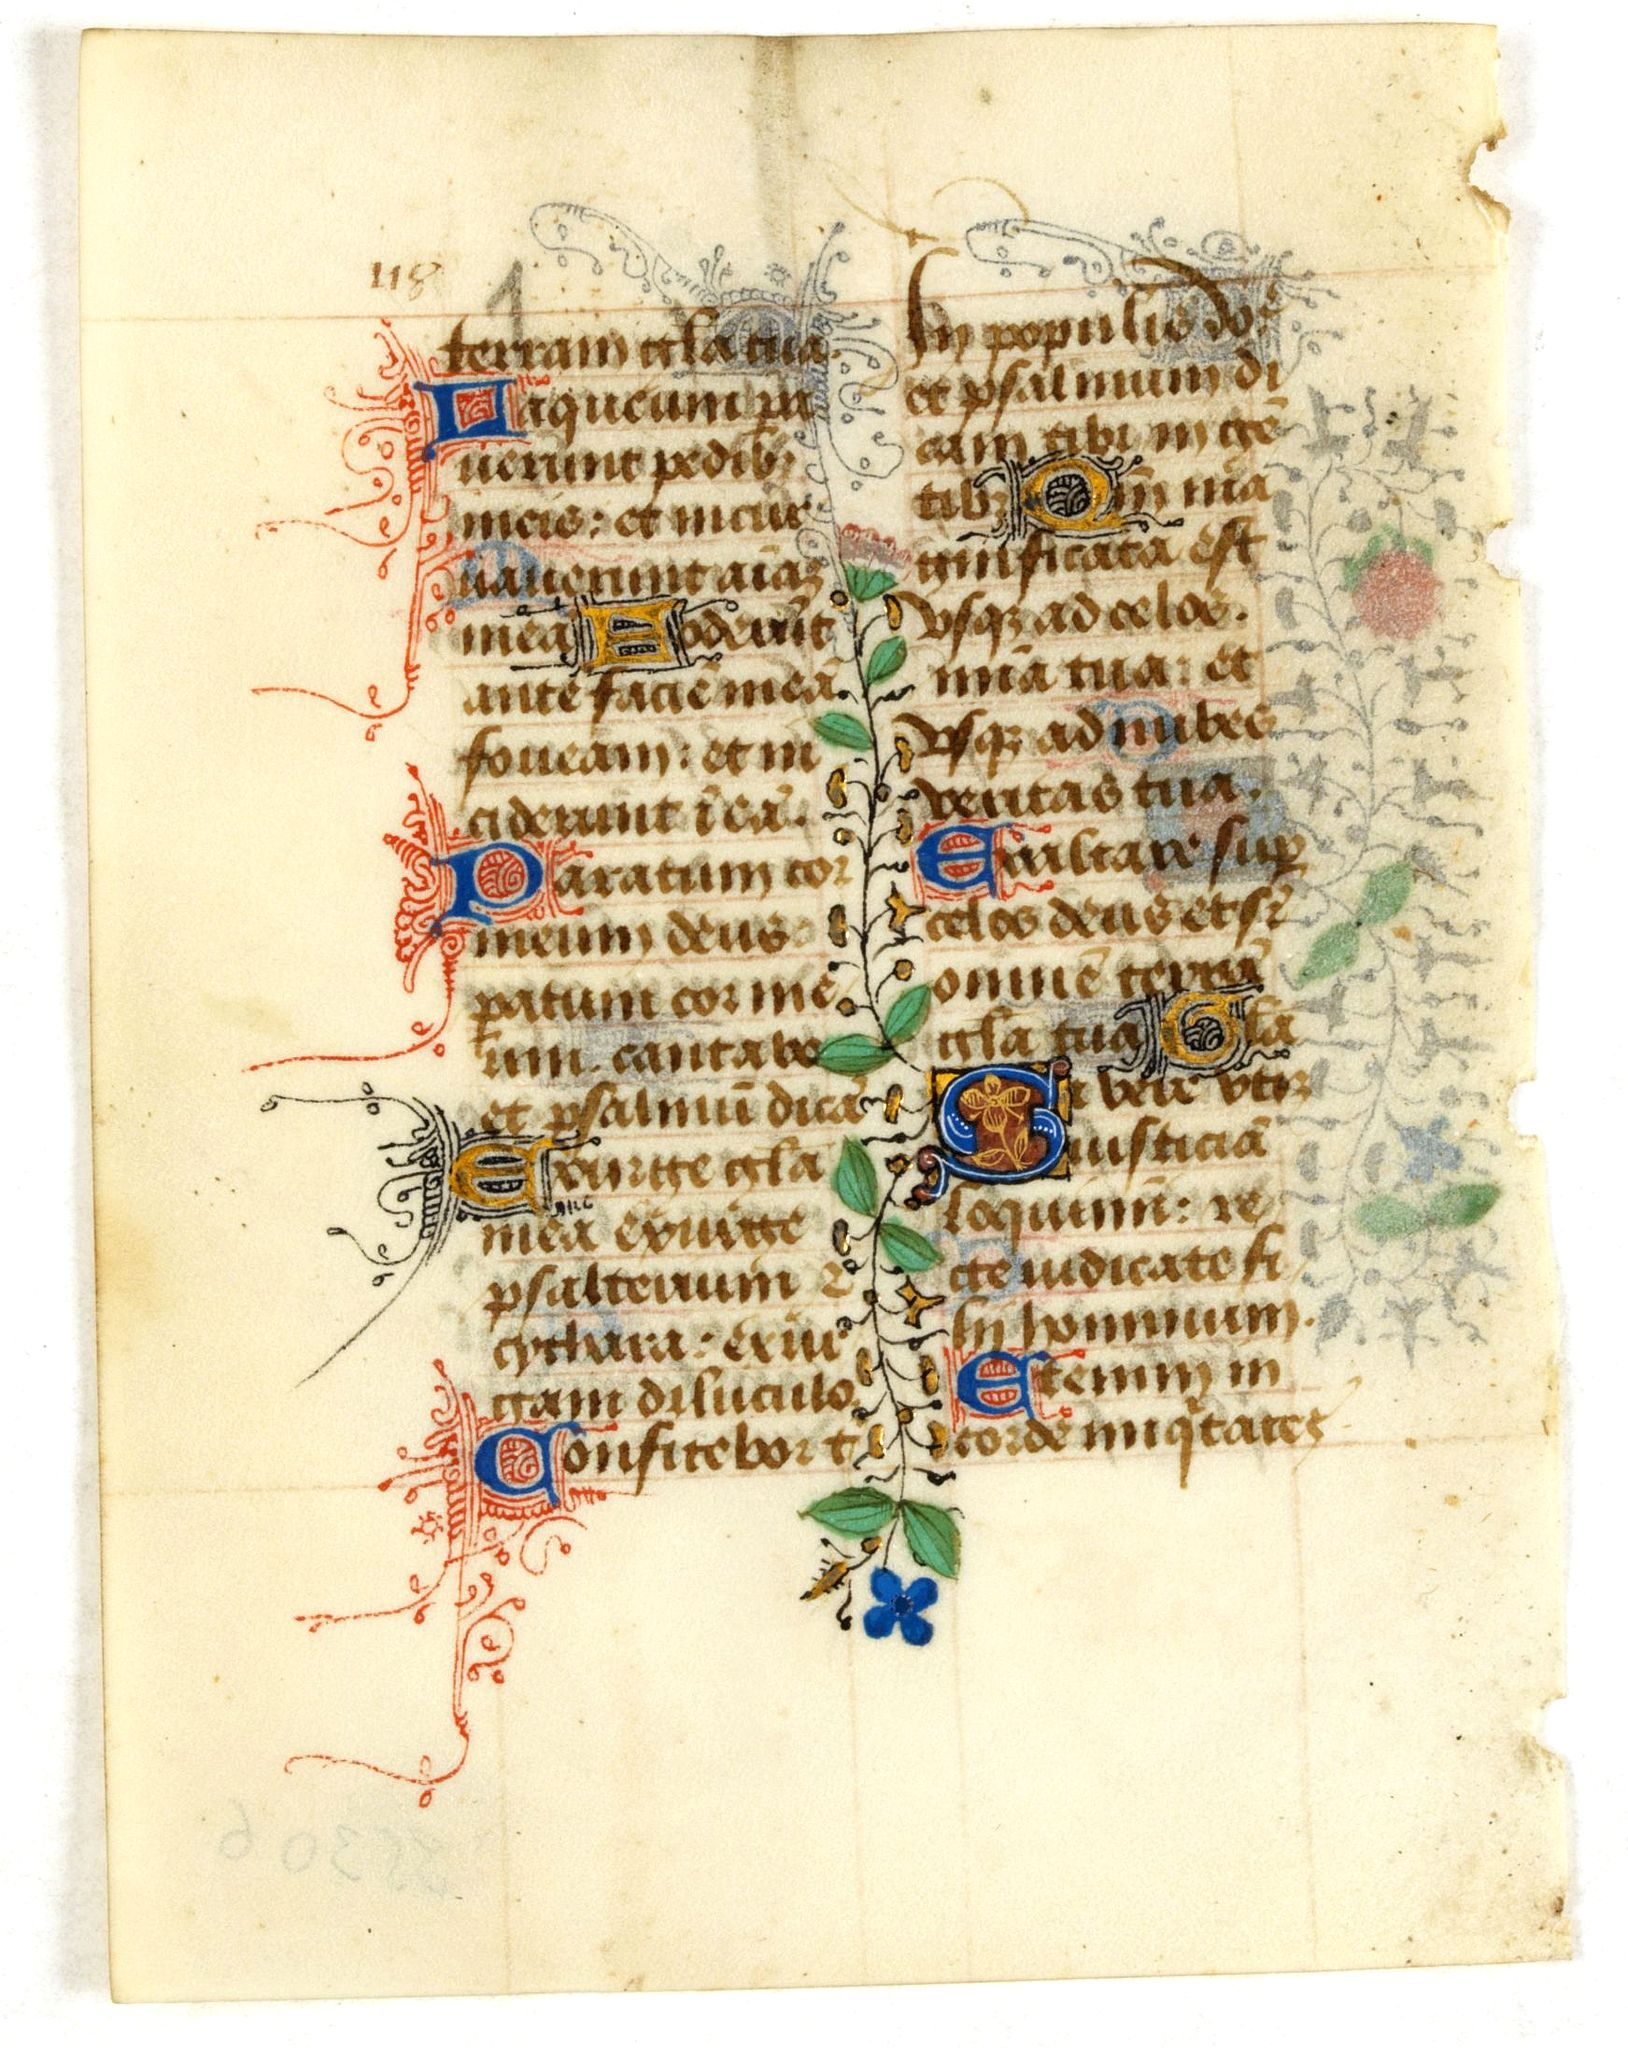 118
1
terram gl̄a tua.
Laqueum pa
rauerunt pedibꝫ
meis: et incur
uauerunt aīaꝫ
meā Foderūt
ante faciē meā
foueam: et in
ciderunt ī eā.
Paratum cor
meum deus
ꝑatum cor me
um. cantabo
et psalmū dicā
Exurge gl̄a
mea exurge
psalterium ⁊
cythara: exur
gam diluculo
Confitebor ti
bi in populis do͞e
et psalmum di
cam tibi in gē
tibꝫ Qm̄ ma
gnificata est
vsqꝫ ad celos.
mīa tua: et
vsqꝫ ad nubes
veritas tua.
Exaltare suꝑ
celos deus et sr̄
omnē terrā
gl̄a tua Gl̄a
Si vere vtiqꝫ
iusticiā
loquimī: re
cte iudicate fi
lij hominum.
Etenim in
corde iniq̄tates